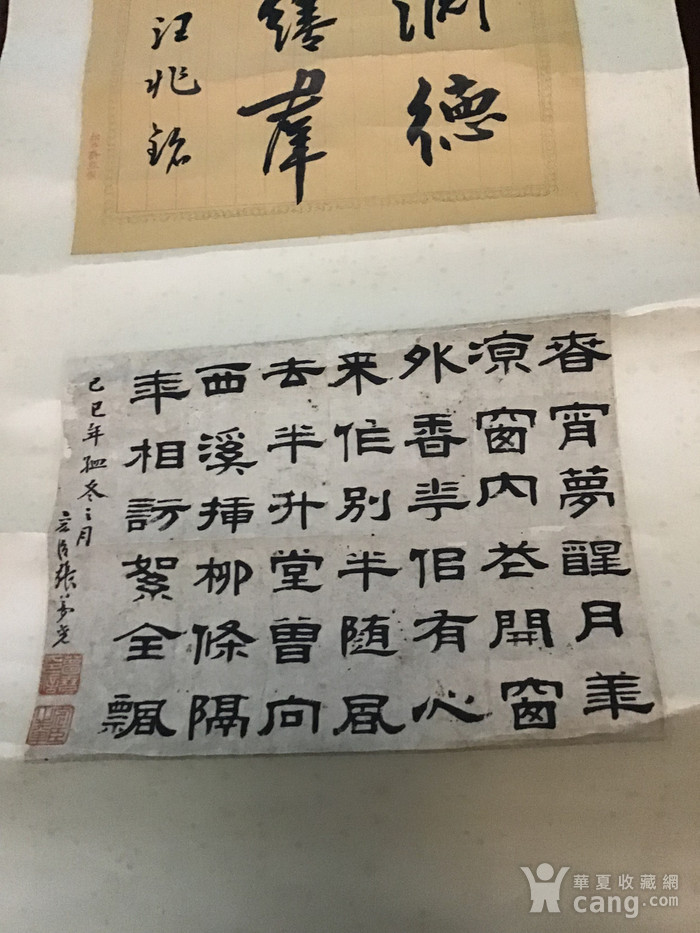 德
羣
汪兆銘
春宵夢醒月華
凉窗内花開窗
外香半佀有心
来作别半随風
去半升堂曾向
西溪插柳條隔
年相訪絮全飄
己巳年孟冬之月 張
華夏收藏網
cang.com